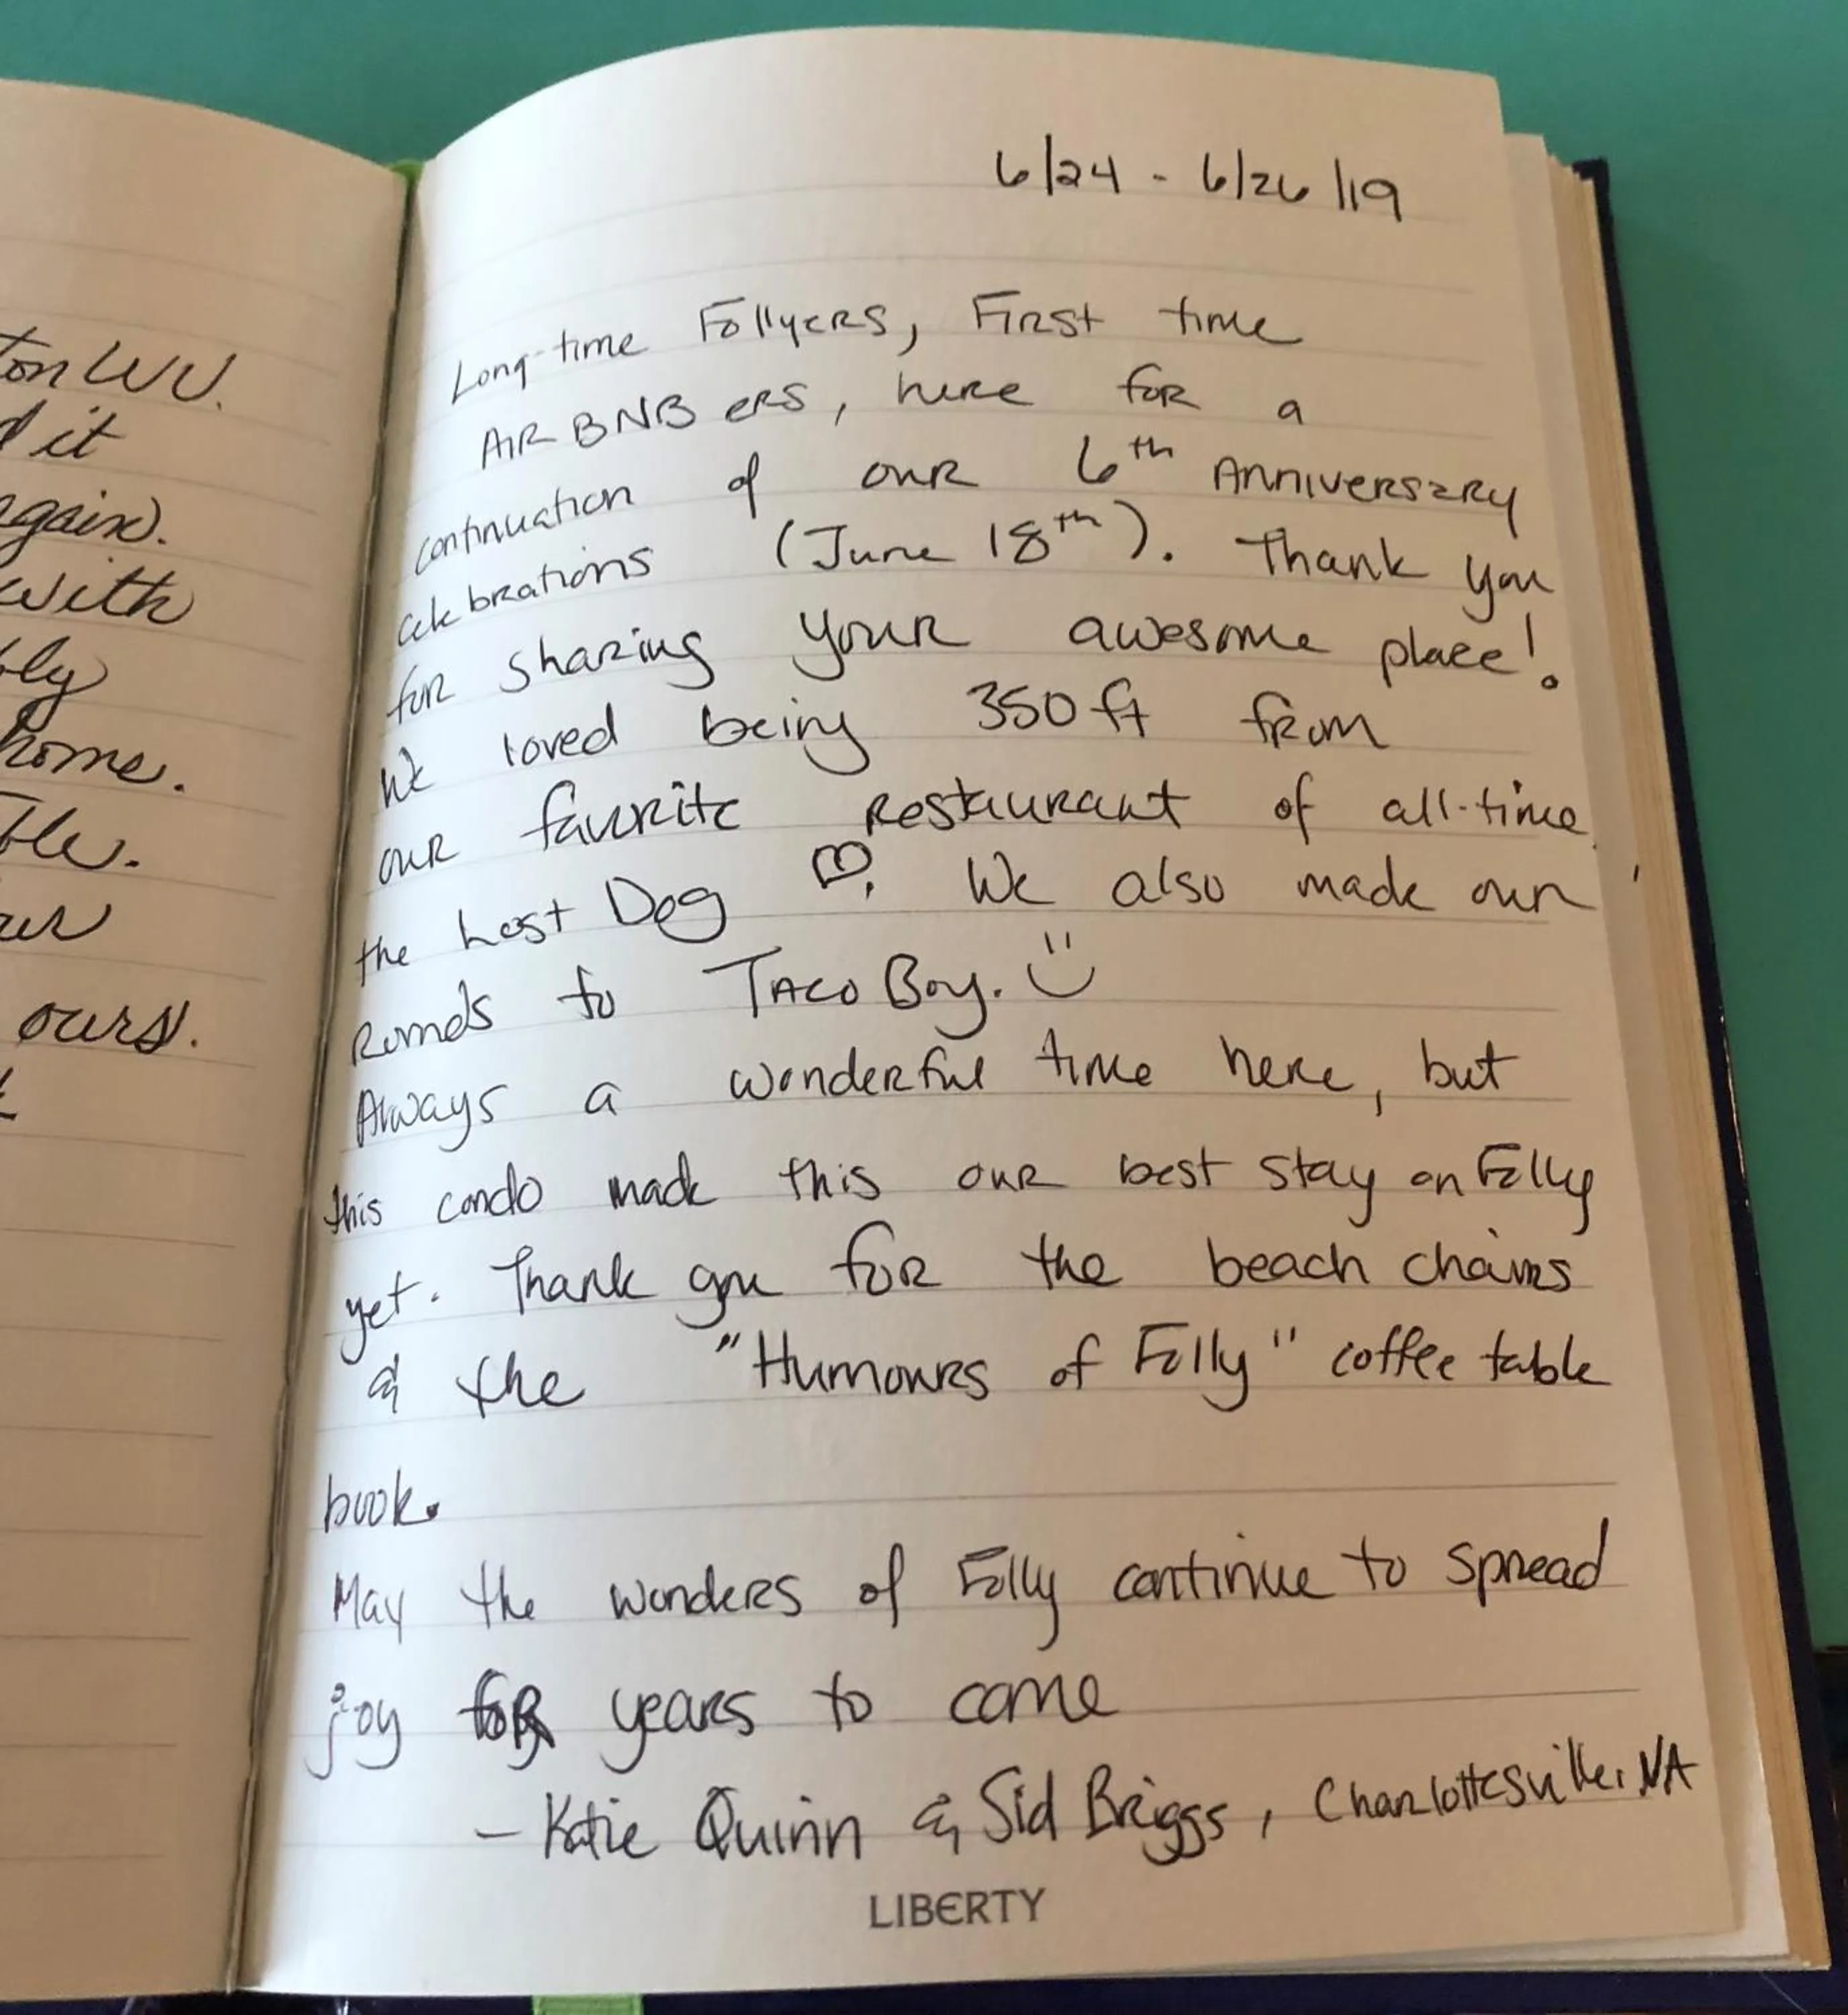 ton WV.
d it
again.
with
tly
home.
ours.
6/24 - 6/26/19
Long-time Follyers, First time
AIRBNBers, here for a
continuation of our 6th Anniversary
celebrations (June 18th). Thank you
for sharing your awesome place!
We loved being 350 ft from
our favorite restaurant of all-time,
the Lost Dog ♡. We also made our
rounds to Taco Boy. ☺
Always a wonderful time here, but
this condo made this our best stay on Folly
yet. Thank you for the beach chairs
& the "Humours of Folly" coffee table
book.
May the wonders of Folly continue to spread
joy for years to come
- Katie Quinn & Sid Briggs, Charlottesville, VA
LIBERTY